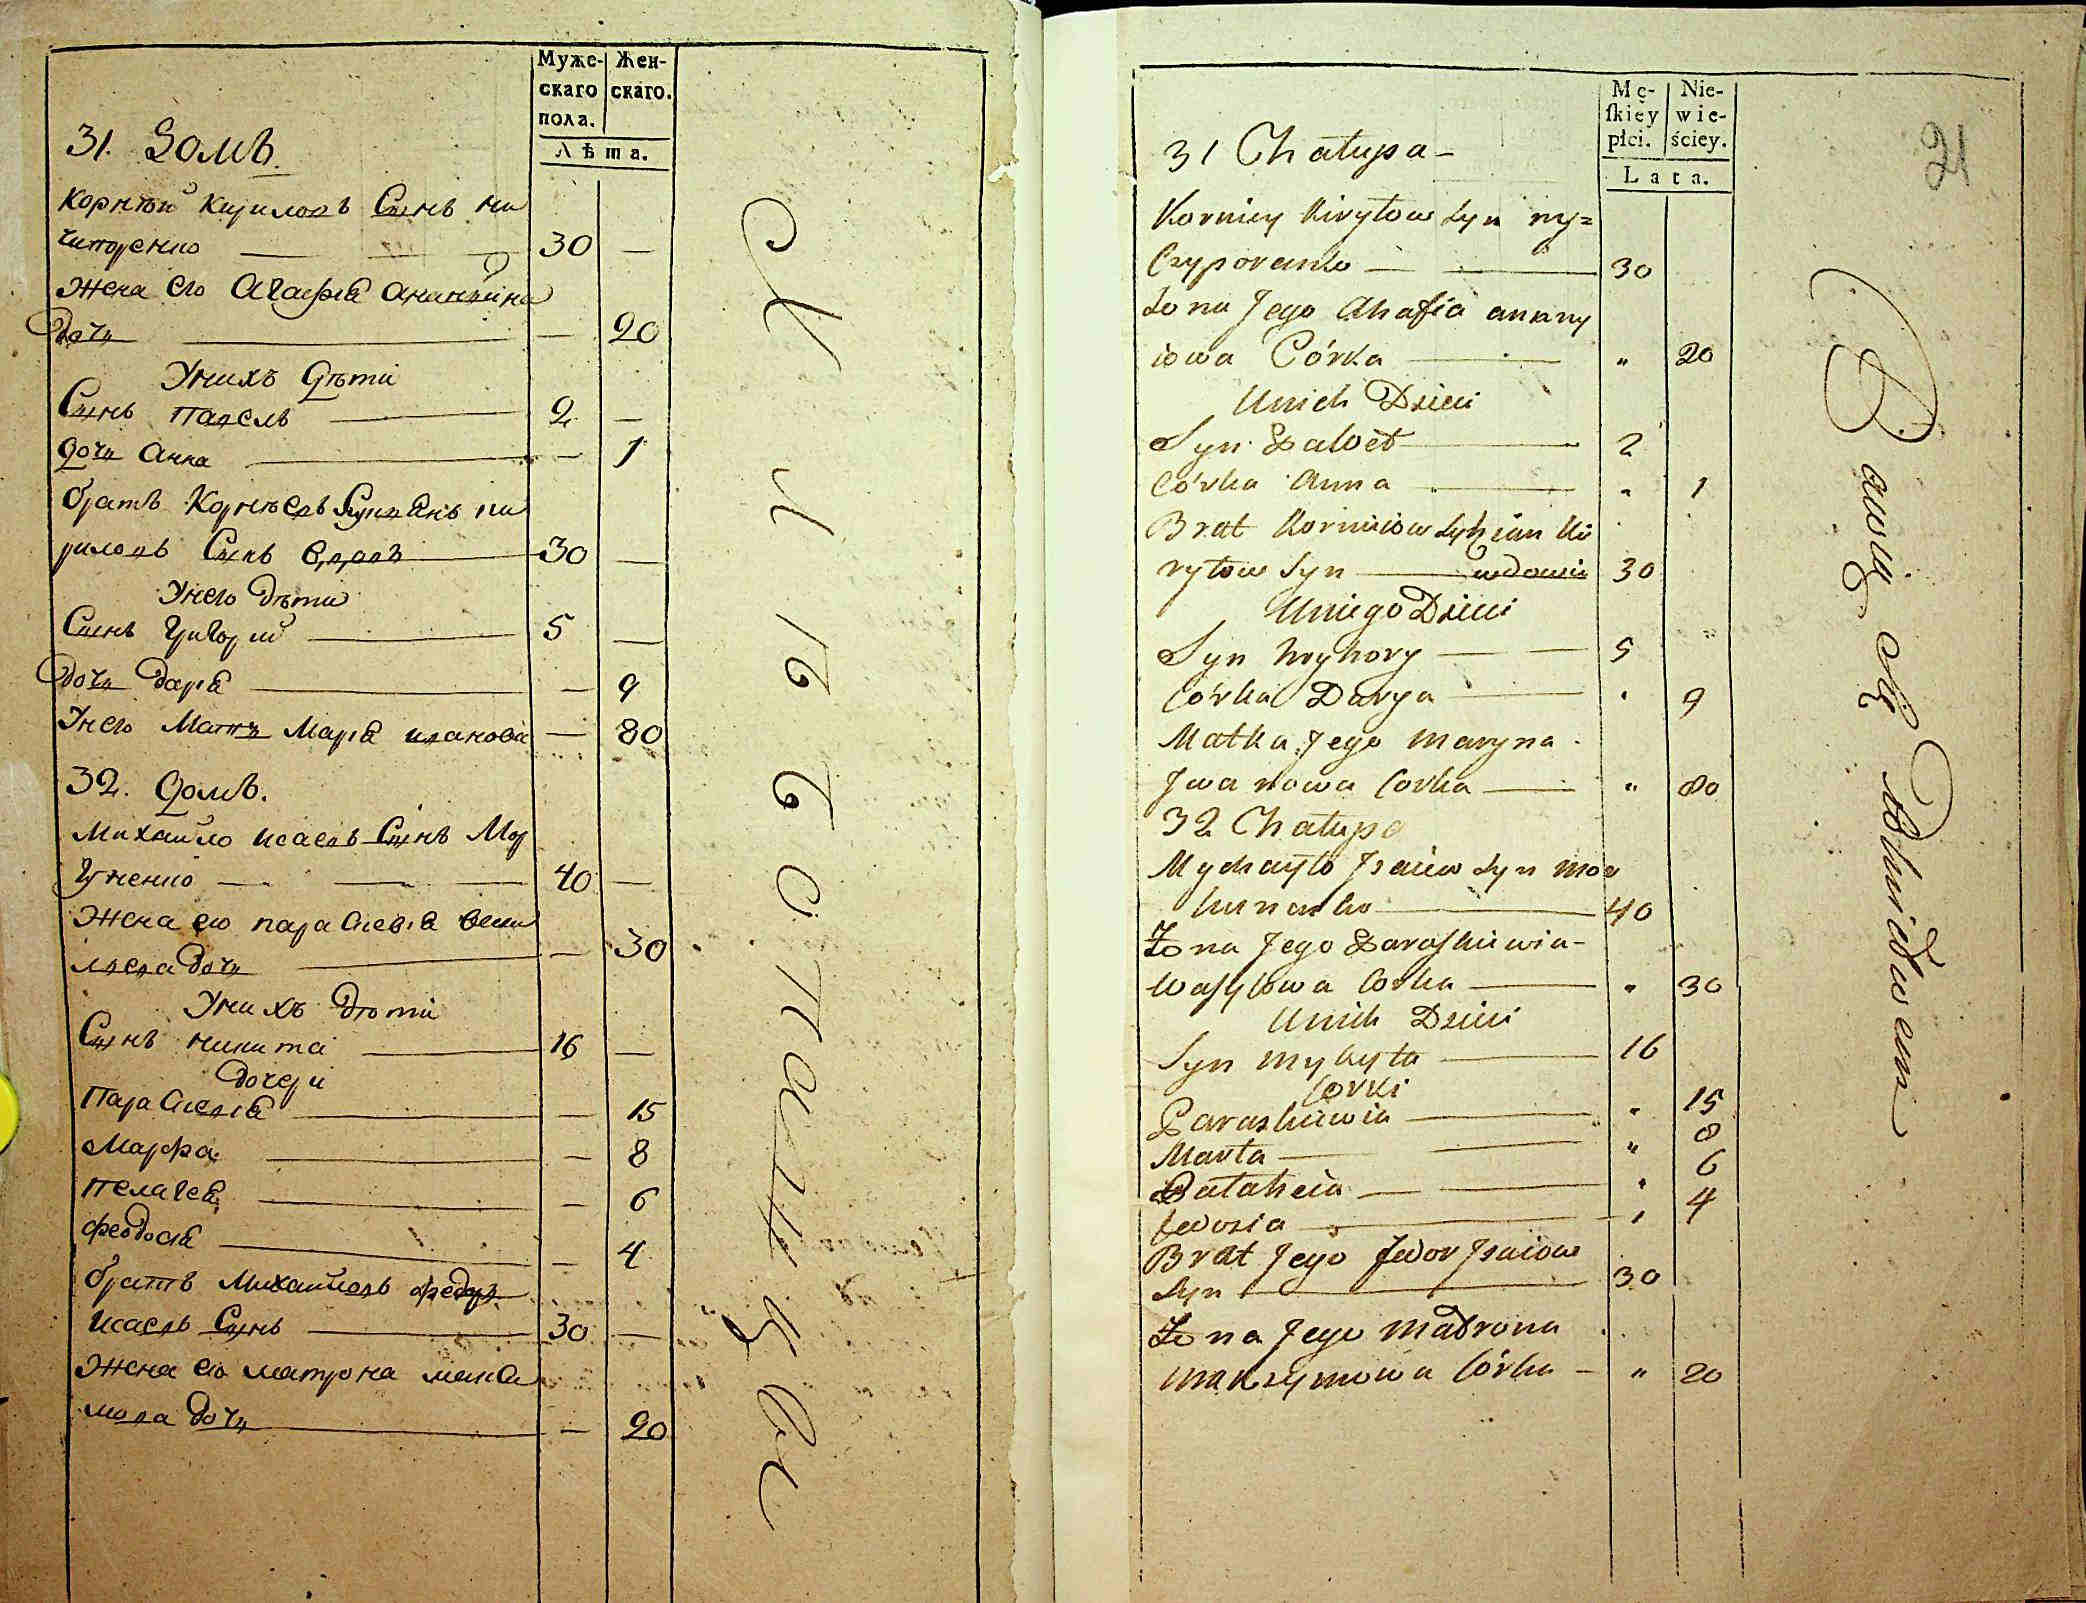 Муже-
скаго
пола.
Жен-
скаго.
Лѣта.
31. Домъ.
Корнѣй Кириловъ Сынъ Ни
чипоренко — 30 —
Жена его Агафiя Ананiина
дочь — 20
У нихъ Дѣти
Сынъ Павелъ — 2 —
Дочь Анна — 1
братъ Корнѣевъ Ки
риловъ Сынъ вдовъ 30 —
У него дѣти
Сынъ Григорий — 5 —
дочь Дарiя — 9
У него Мать Марiя Иванова — 80
32. Домъ.
Михайло Исаевъ Сынъ Мор
гуненко — 40 —
Жена его Параскевiя Васи
лева дочь — 30
У нихъ дѣти
Сынъ Никита — 16 —
дочери
Параскевiя — 15
Марфа — 8
Пелагея — 6
Феодосiя — 4
братъ Михайловъ Федоръ
Исаевъ Сынъ — 30 —
Жена его Матрона Макси
мова дочь — 20
Скитъ
Mę-
ſkiey
płci.
Nie-
wie-
ściey.
Lata.
21
31 Chałupa –
Korniey Kiryłow Syn ny=
Czyporenko — 30
Żona Jego Ahafia anany
iowa Córka — " 20
U nich Dzieci
Syn Paweł — 2
Córka Anna — " 1
Brat Korniiow Ki
ryłow Syn — wdowiec 30
U niego Dzieci
Syn Hryhory — 5
Córka Darya — " 9
Matka Jego Maryna
Jwanowa Corka — " 80
32 Chałupa
Mychayło Jsaiew Syn mor
hunenko — 40
Żona Jego Paraſkiewia –
Waſylowa Corka — " 30
U nich Dzieci
Syn Mykyta — 16
Corki
Paraskiewia — " 15
Marta — " 8
Pałaheia — " 6
Fedosia — " 4
Brat Jego Fedor Jsaiow
Syn — 30
Żona Jego Madrona
Makzymowa Córka – " 20
Bawią się